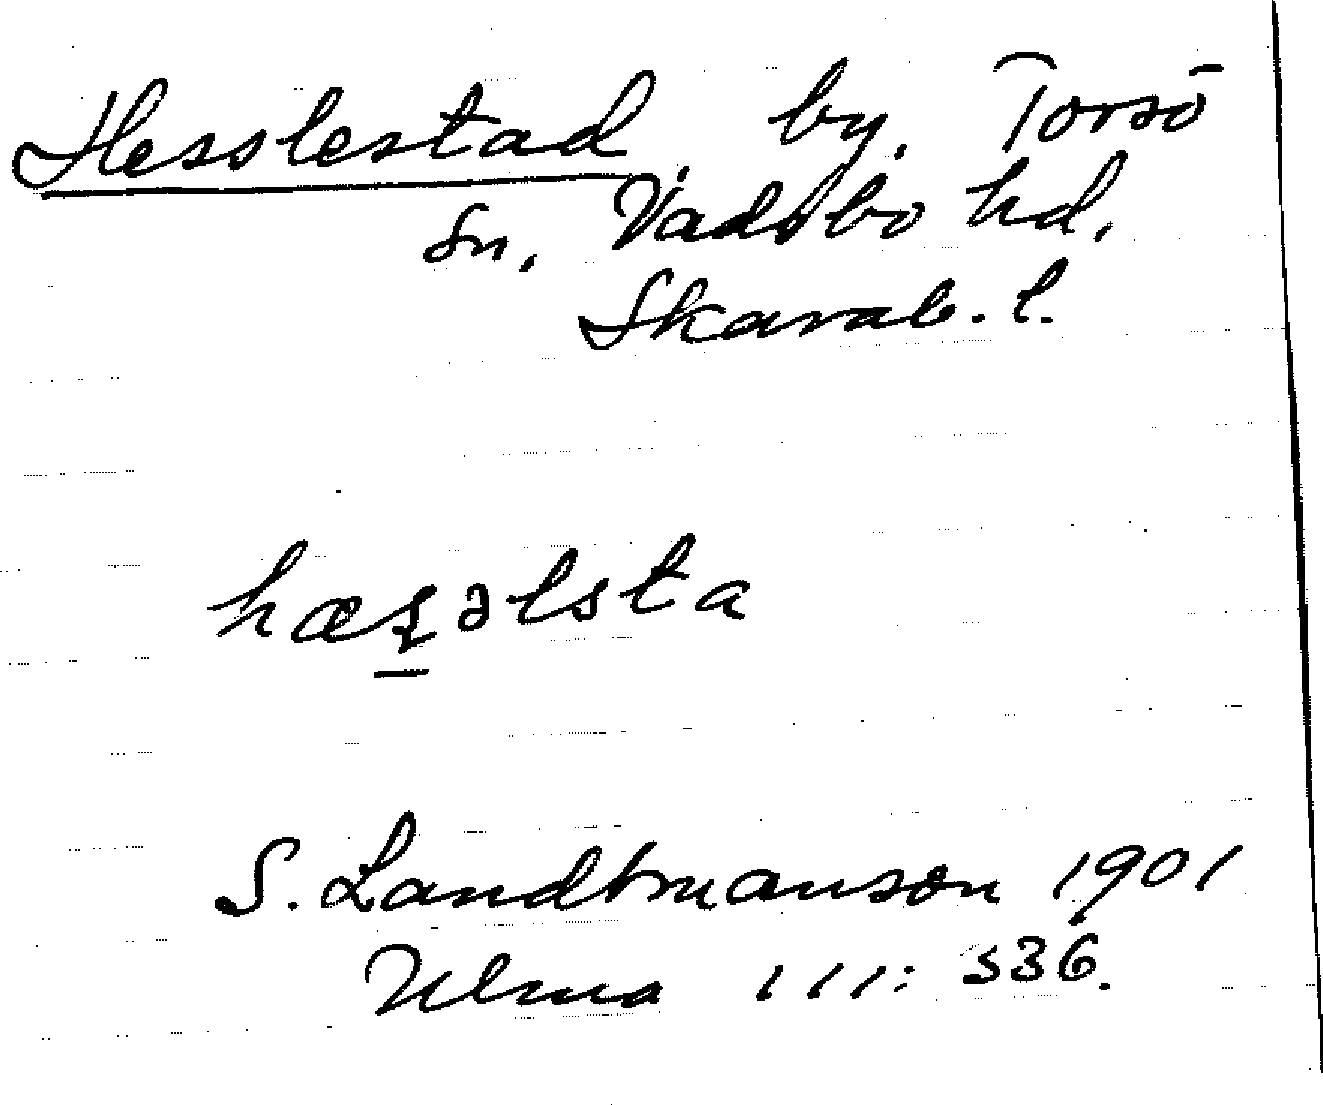 Hesslestad, by, Torsö
sn, Vadsbo hd,
Skarab. l.
hæsəlsta
S. Landtmanson 1901
Ulma 111: 336.